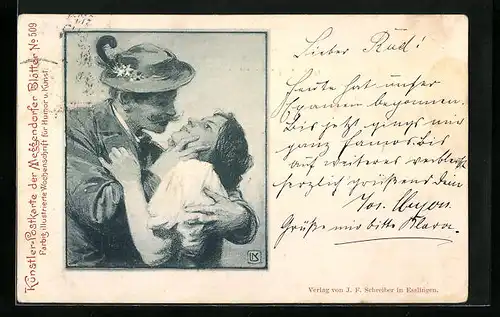 Künstler-Postkarte der Meggendorfer Blätter No 509
Farbig illustrierte Wochenschrift für Humor u. Kunst.
Lieber Rud!
Heute hat unser
Examen begonnen.
Bis jetzt gings mir
ganz famos. Bis
auf weiteres verbleibt
herzlich grüßend Dein
Jos. Meyer.
Grüße mir bitte Klara.
LK
Verlag von J. F. Schreiber in Esslingen.